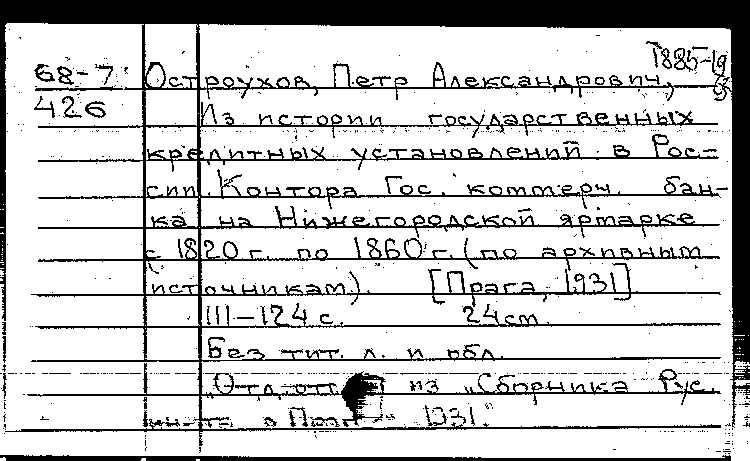 1885-19
68-7 Остроухов, Петр Александрович,
426 Из истории государственных
кредитных установлений в Рос=
сии. Контора Гос. коммерч. бан-
ка на Нижегородской ярмарке
с 1820 г. по 1860 г. (по архивным
источникам). [Прага, 1931]
III-124 с. 24 cm.
Без тит. л. и обл.
"Отд. отт. из "Сборника Рус.
ин-та в Праге" 1931."